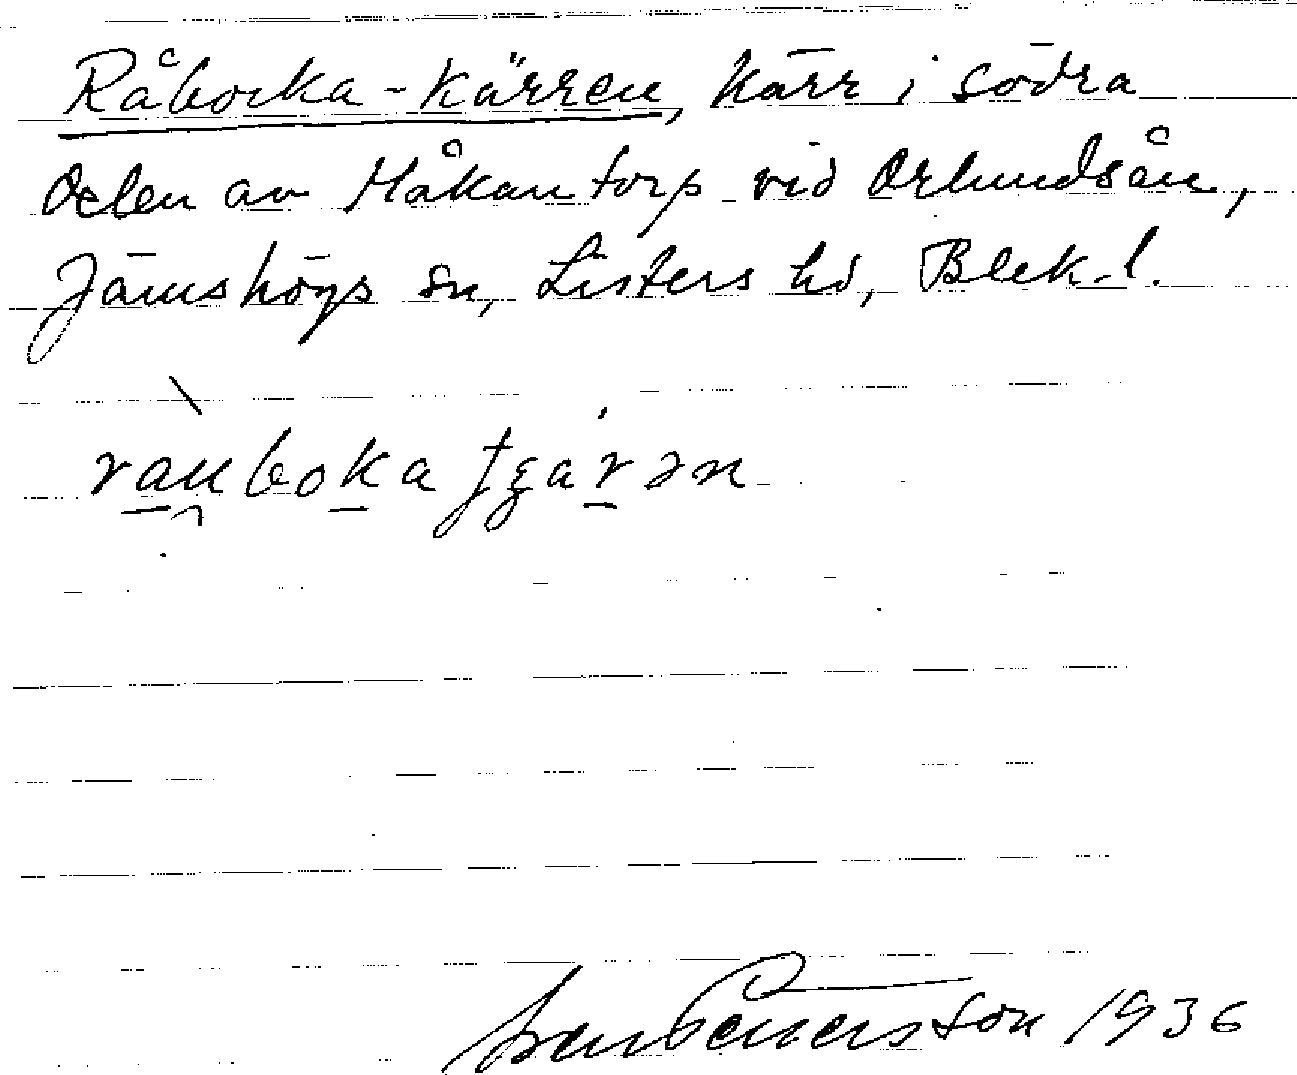 Råbocka-kärren, kärr i södra
delen av Håkantorp vid Orlundsån,
Jämshögs sn, Listers hd, Blek. l.
rauboka
1936